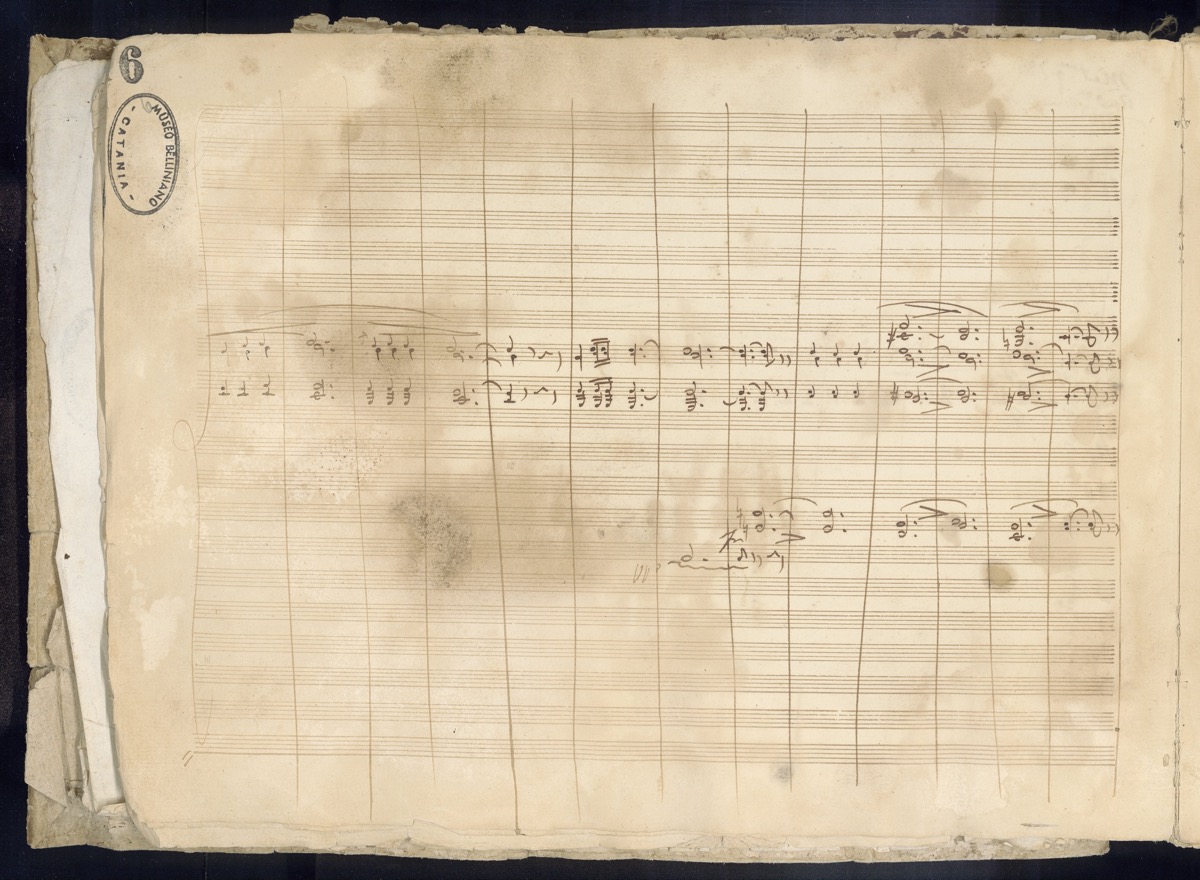 6
MUSEO BELLINIANO
- CATANIA -